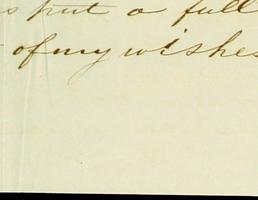 put a full
of my wishes